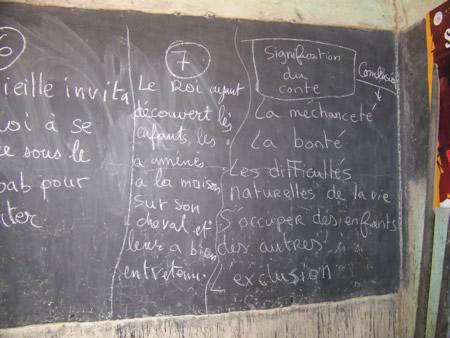 6
ieille invita
oi à se
ce sous le
bab pour
iter
7
Le Roi ayant
découvert les
enfants, les
a amenés
à la maison
sur son
cheval et
leur a bien
entretenu.
Signification
du
conte
Conclusion
La méchanceté
La bonté
Les difficultés
naturelles de la vie
S'occuper des enfants
des autres
L'exclusion